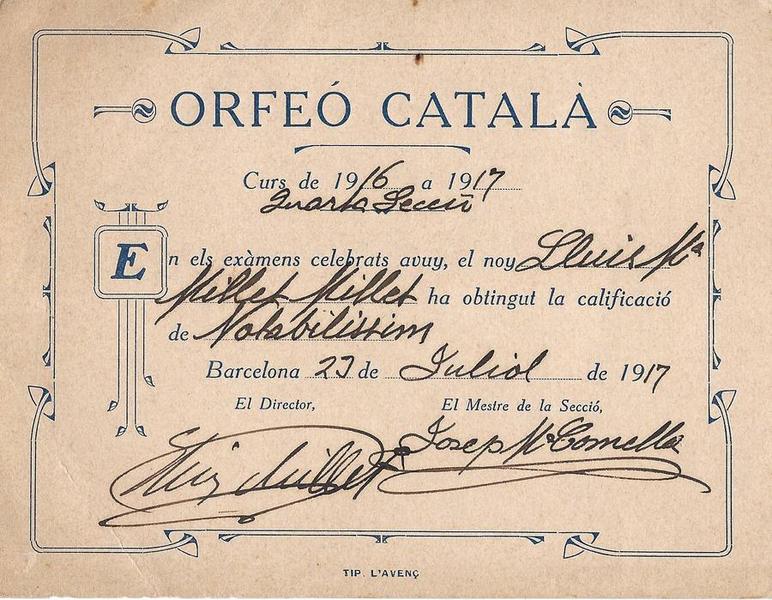 ORFEÓ CATALÀ
Curs de 1916 a 1917
Quarta Secció
En els exàmens celebrats avuy, el noy Lluis Mª
Millet Millet ha obtingut la calificació
de Notabilissim
Barcelona 23 de Juliol de 1917
El Director, El Mestre de la Secció,
Lluis Millet Josep Mª Comella
TIP. L'AVENÇ